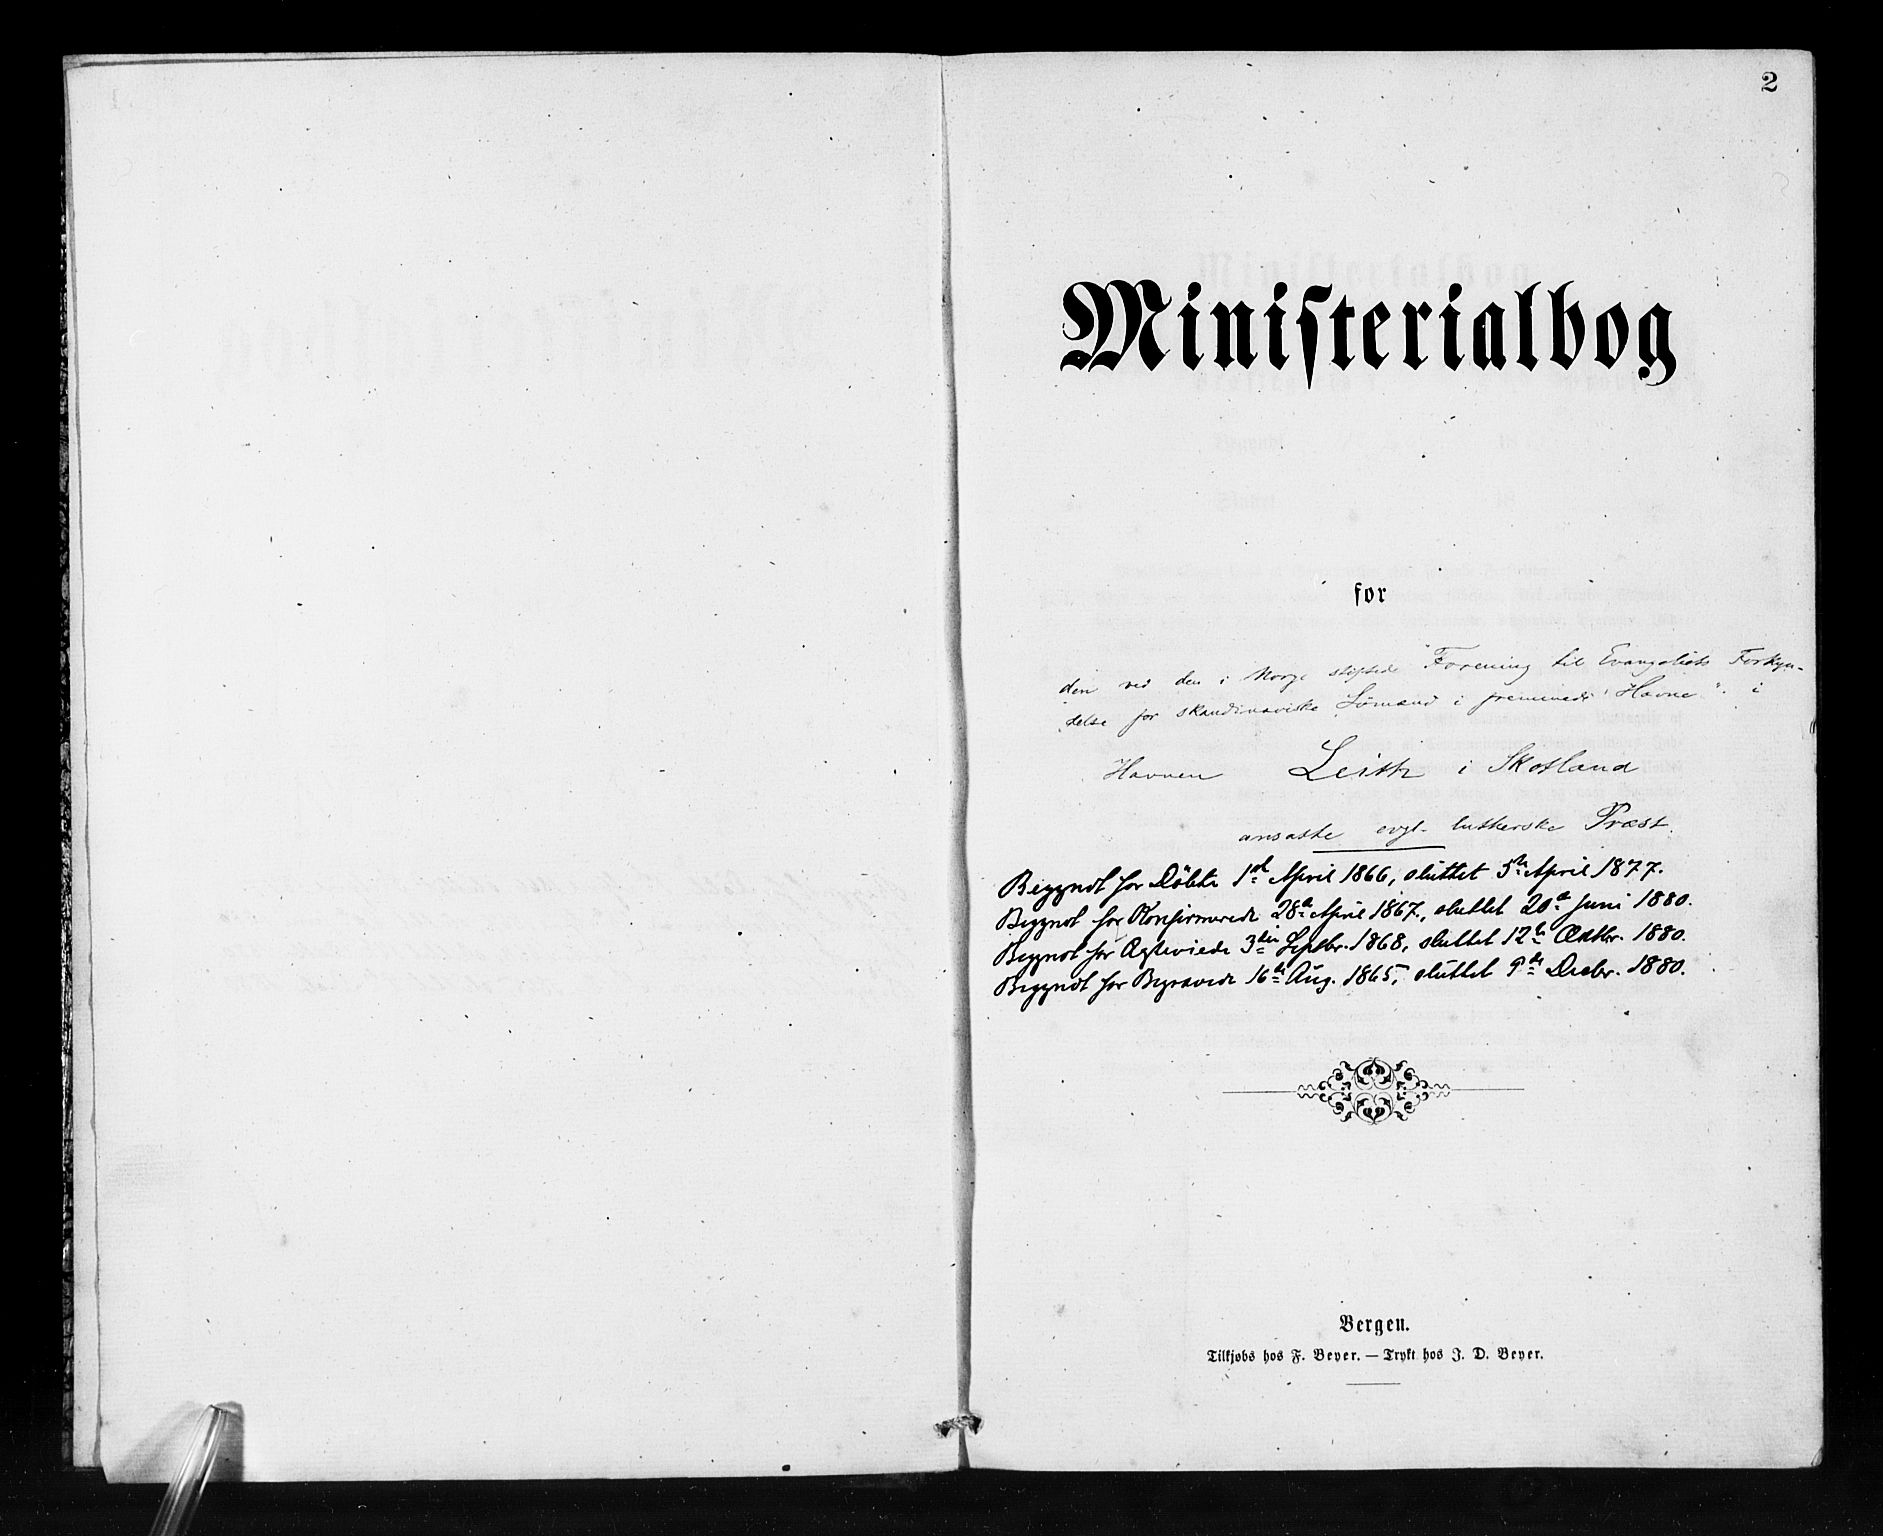 2
Ministerialbog
for
den ved den i Norge stiftede "Forening til Evangeliets Forkyn-
delse for skandinaviske Sömænd i fremmede Havne". i
Havnen Leith i Skotland
ansatte evgl. lutherske Præst.
Begyndt for Döbte 1st April 1866, sluttet 5te April 1877.
Begyndt for Konfirmerede 28de April 1867, sluttet 20de Juni 1880.
Begyndt for Ægteviede 3die Septbr. 1868, sluttet 12te Octbr. 1880.
Begyndt for Begravede 16de Aug. 1865, sluttet 9de Decbr. 1880.
Bergen.
Tilkjøbs hos F. Beyer. — Trykt hos J. D. Beyer.